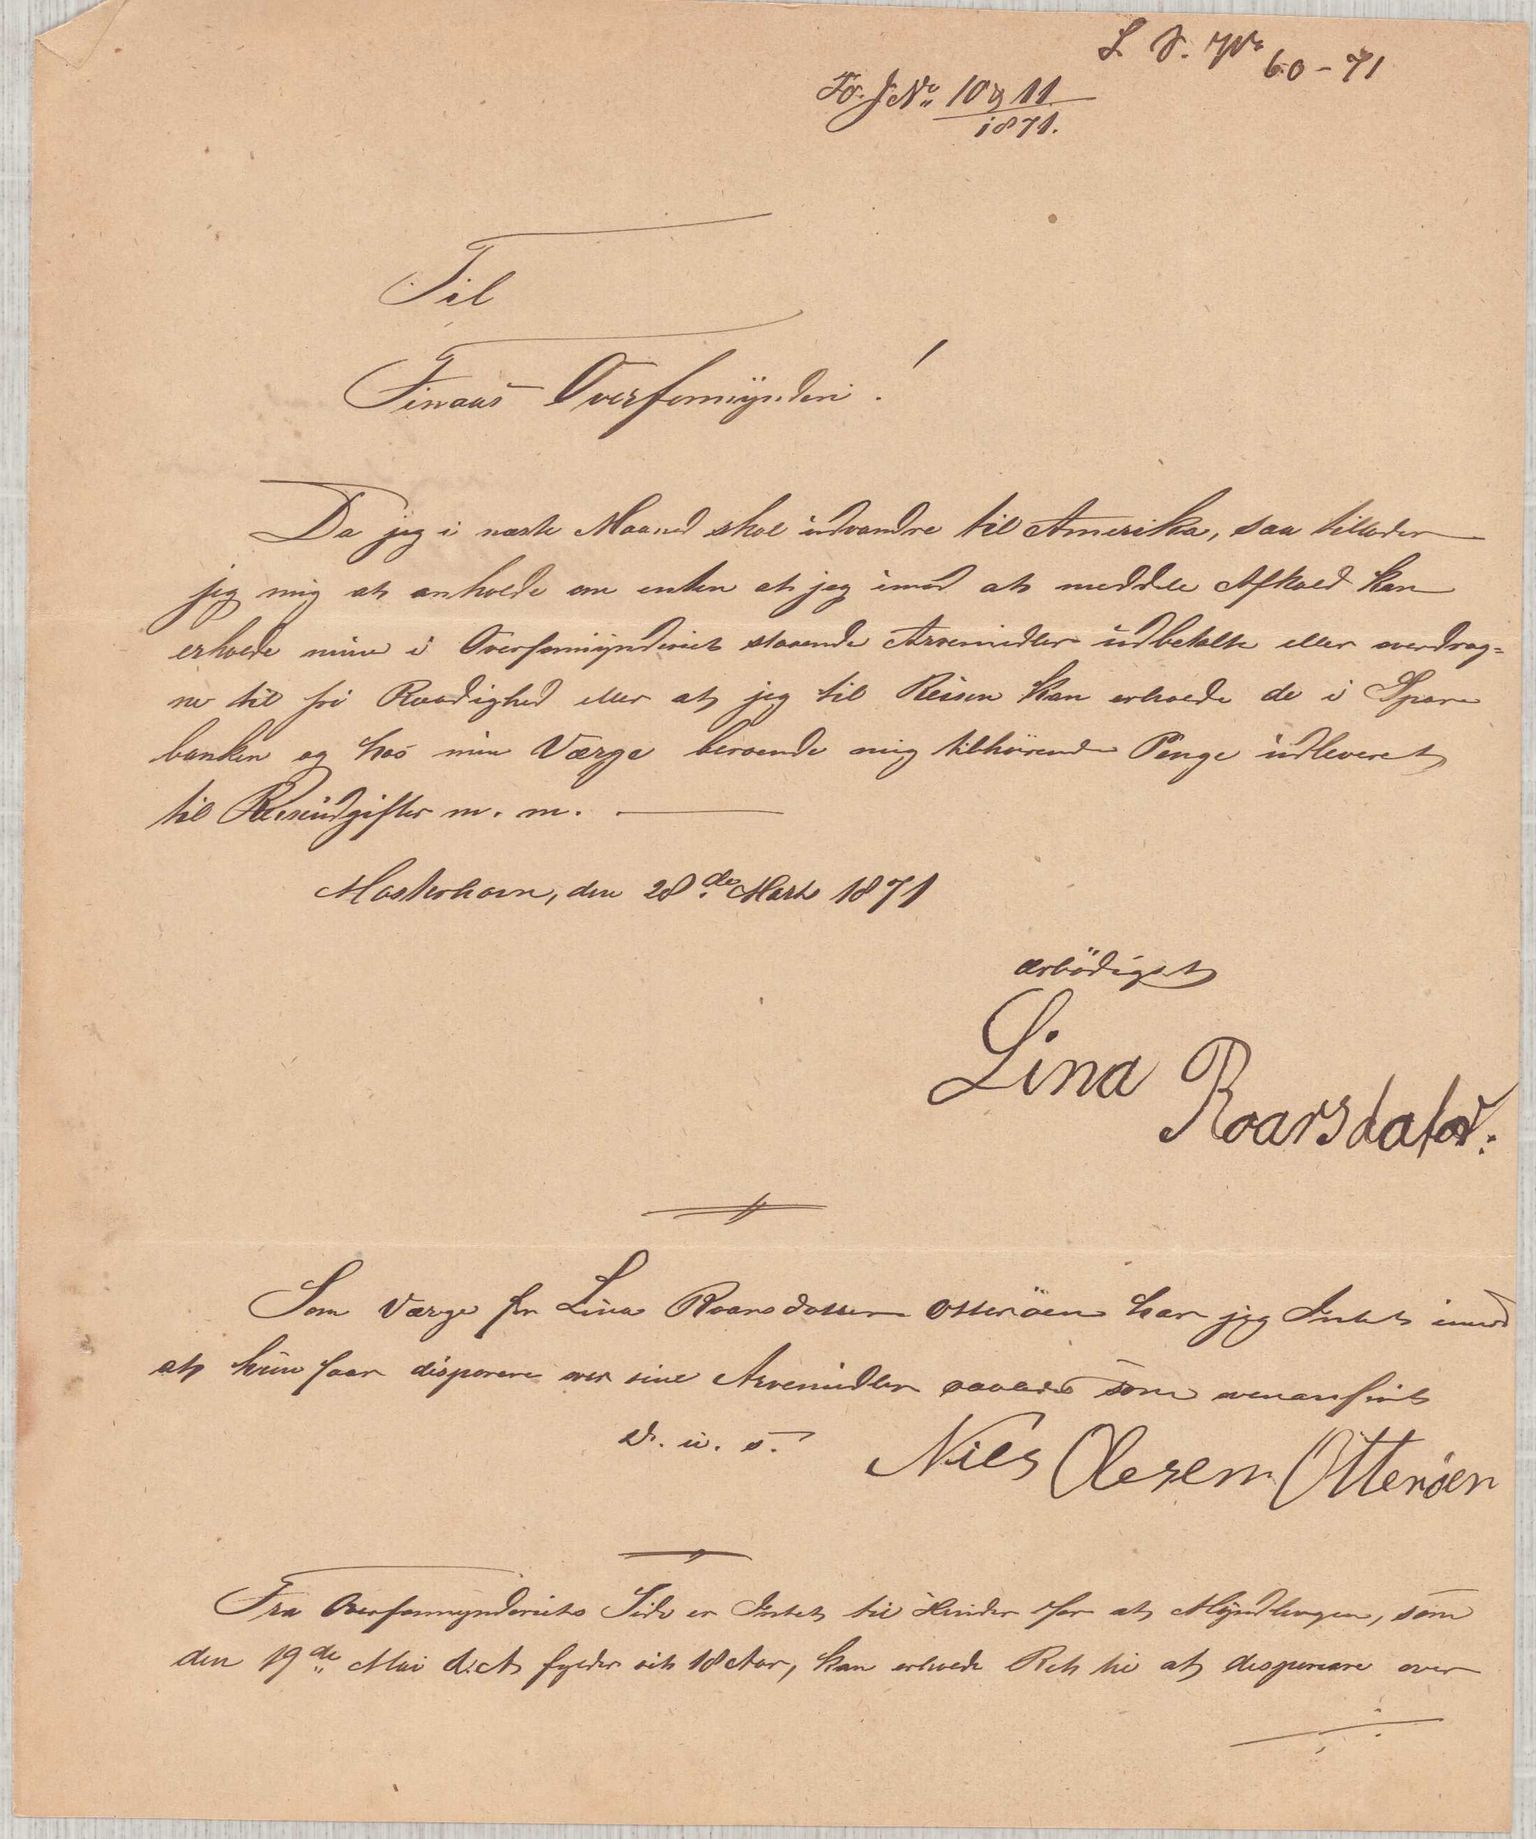 L. J. No 60-71
Fo. J No. 10 & 11
1871.
Til
Finaas Overformynderi!
Da jeg i næste Maaned skal udvandre til Amerika, saa tillader
jeg mig at anholde om enten at jeg imod at meddele Afkald kan
erholde mine i Overformynderiet staaende Arvemidler udbetalte eller overdrag=
ne til fri Raadighed eller at jeg til Reisen kan erholde de i Spare
banken og hos min Værge beroende mig tilhørende Penge udleveret
til Reiseudgifter m. m.
Mosterhavn, den 28de Marts 1871
ærbödigst
Lina Roarsdator.
Som Værge for Lina Roarsdatter Otteröen har jeg Intet imod
at hun faar disponere over sine Arvemidler saaledes som ovenanfört
D. u. s. Niels Olesen Otterøen
Fra Overformynderiets Side er Intet til Hinder for at Myndlingen, som
den 19de Mai d. A. fylder sit 18 Aar, kan erholde Ret til at disponere over